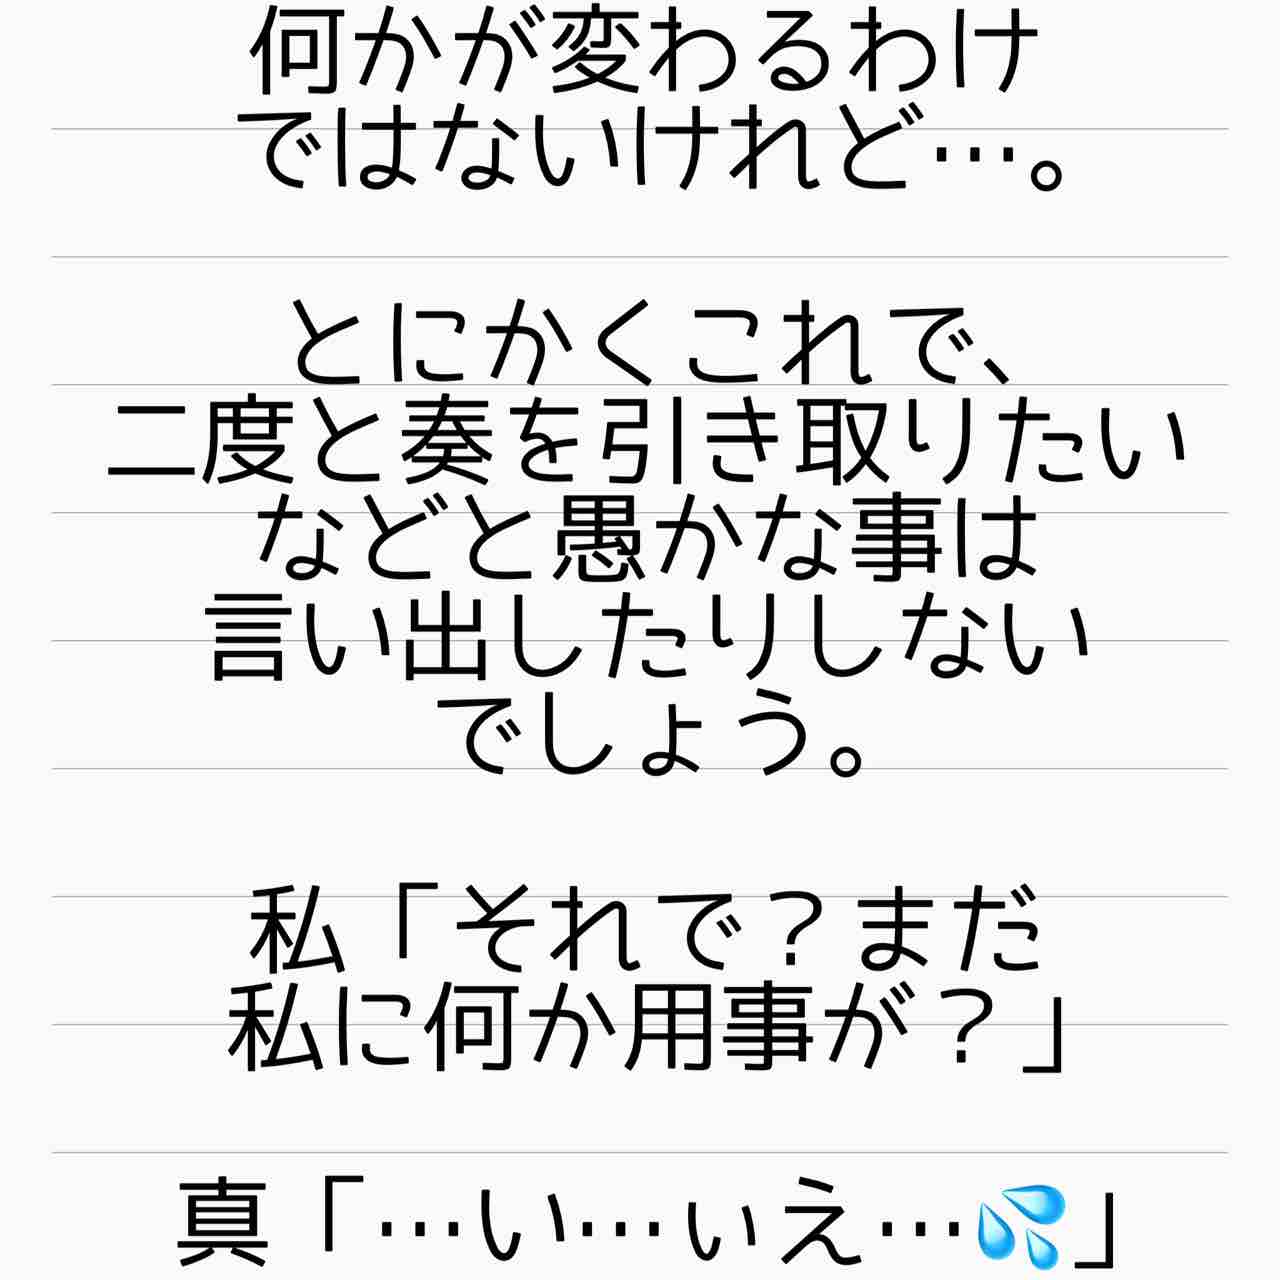 何かが変わるわけ
ではないけれど…。
とにかくこれで、
二度と奏を引き取りたい
などと愚かな事は
言い出したりしない
でしょう。
私「それで？まだ
私に何か用事が？」
真「…い…ぃえ…💦」